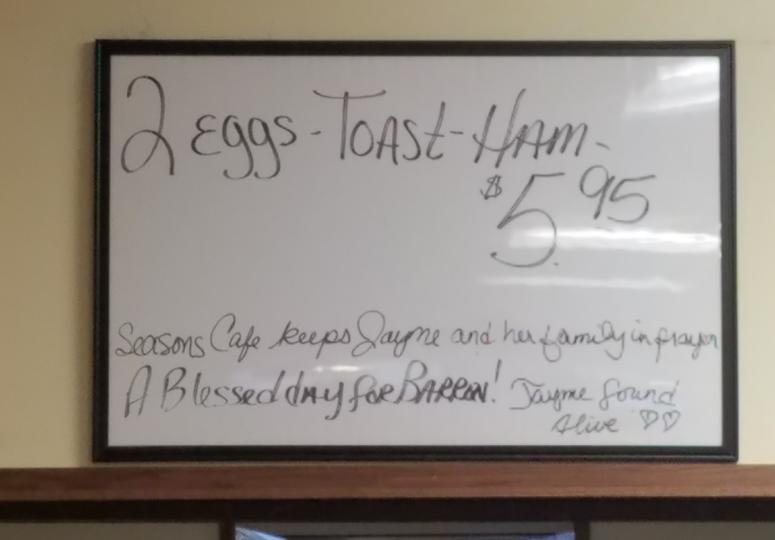 2 eggs - Toast - Ham -
$5.95
Seasons Cafe keeps Jayme and her family in prayer
A Blessed day for Barron! Jayme found
Alive ♡♡